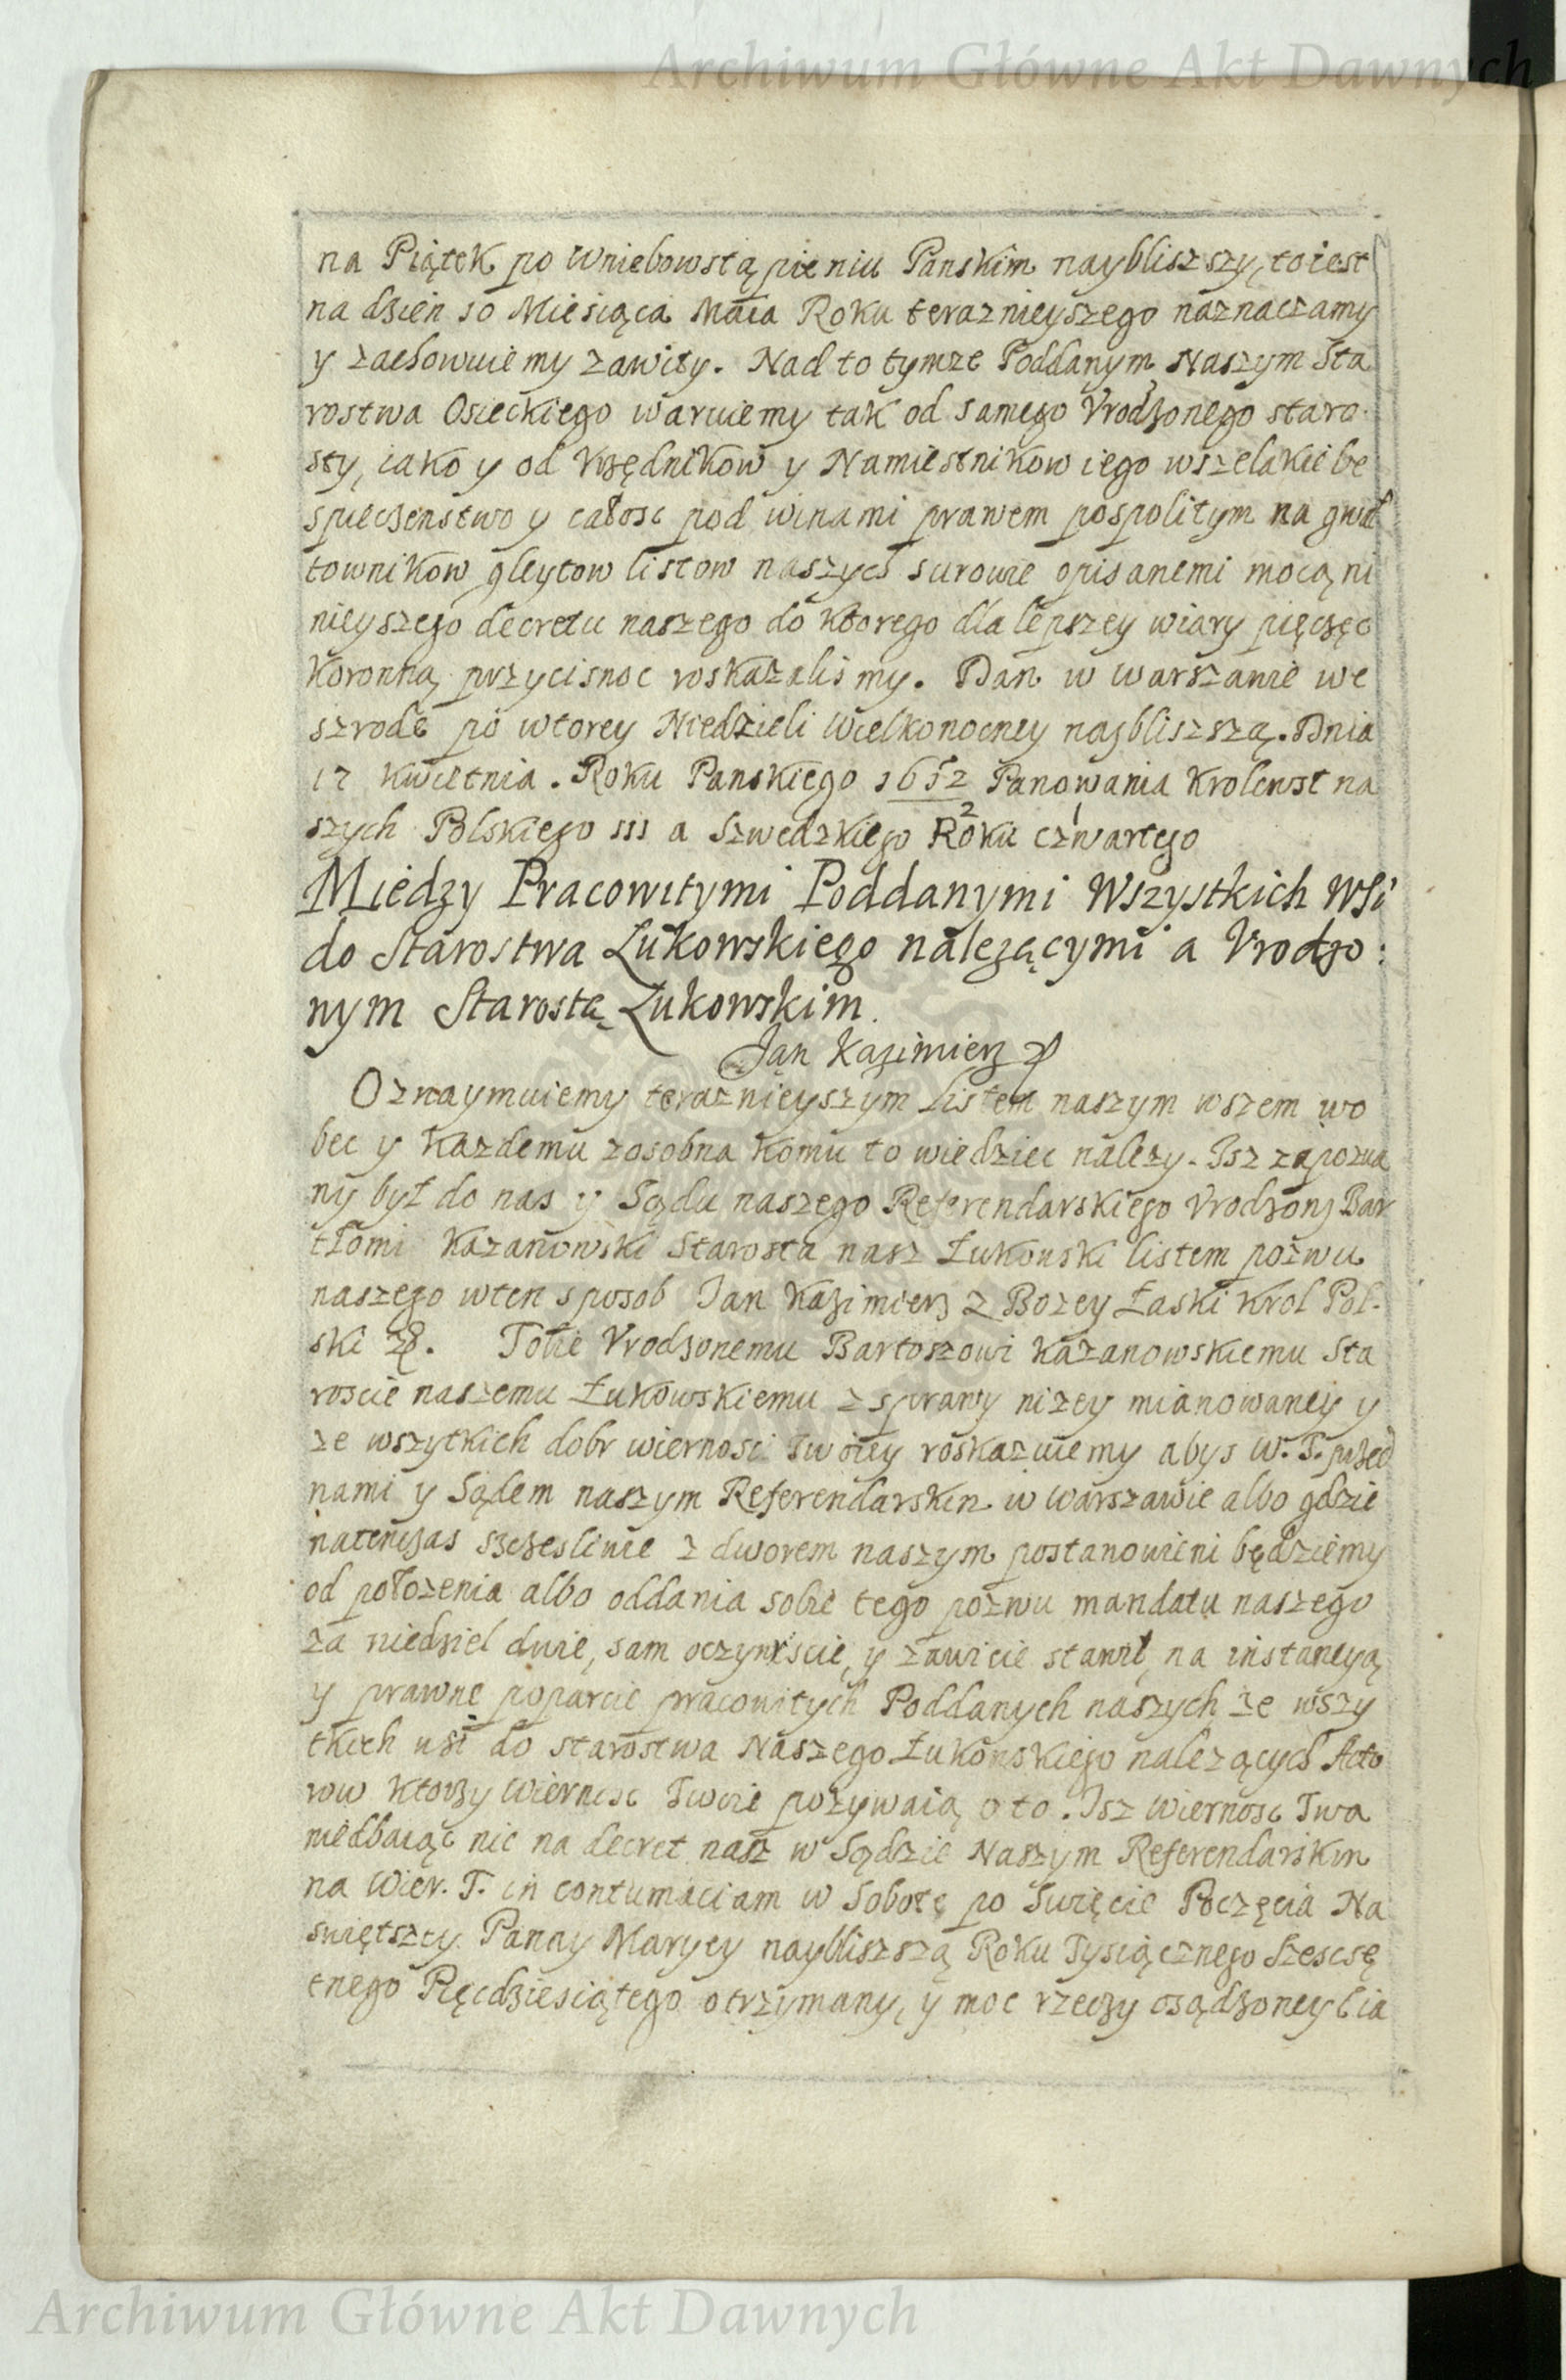 Archiwum Główne Akt Dawnych
na Piątek po Wniebowstąpieniu Panskim nayblisszy, to iest
na dzien 10 Miesiąca Maia Roku teraznieyszego naznaczamy
y zachowuiemy zawity. Nad to tymze Poddanym Naszym Sta
rostwa Osieckiego waruiemy tak od samego Vrodzonego staro
sty, iako y od Vrzędnikow y Namiestnikow iego wszelakie be
spieczenstwo y całosc pod winami prawem pospolitym na gwał
townikow gleytow listow naszych surowie opisanemi mocą ni
nieyszego decretu naszego do ktorego dla lepszey wiary pięczęc
Koronną przycisnoc roskazalismy. Dan w Warszawie we
szrode po wtorey Niedzieli Wielkonocney najbliszszą. Dnia
17 kwietnia. Roku Panskiego 1652 Panowania Krolewst na
szych Polskiego III a Szwedzkiego Roku czwartego
Miedzy Pracowitymi Poddanymi Wszystkich Wsi
do Starostwa Lukowskiego nalezącymi a Vrodzo:
nym Starostą Lukowskim.
Jan Kazimierz
Oznaymuiemy teraznieyszym Listem naszym wszem wo
bec y kazdemu zosobna komu to wiedziec nalezy. Isz zapozwa
ny był do nas y Sądu naszego Referendarskiego Vrodzony Bar
tłomi Kazanowski Starosta nasz Łukowski listem pozwu
naszego wten sposob Jan Kazimierz z Bozey Łaski Krol Pol-
ski &. Tobie Vrodzonemu Bartoszowi Kazanowskiemu Sta
roscie naszemu Łukowskiemu z sprawy nizey mianowaney y
ze wszytkich dobr wiernosci twoiey roskazuiemy abys W. T. przed
nami y Sądem naszym Referendarskim w Warszawie albo gdzie
natenczas szczesliwie z dworem naszym postanowieni będziemy
od położenia albo oddania sobie tego pozwu mandatu naszego
za niedziel dwie, sam oczywiscie, y zawicie stawił, na instancyą
y prawne poparcie pracowitych Poddanych naszych ze wszy
tkich wsi do starostwa Naszego Łukowskiego nalezących Acto
row ktorzy Wiernosc Twoie pozywaią o to. Isz Wiernosc Twa
niedbaiąc nic na decret nasz w Sądzie Naszym Referendarskim
na Wier. T. in contumaciam w Sobotę po Swięcie Poczęcia Na
swiętszey Panny Maryey naybliszszą Roku Tysiącznego Szescsę
tnego Pięcdziesiątego otrzymany, y moc rzeczy osądzoney bia
Archiwum Główne Akt Dawnych